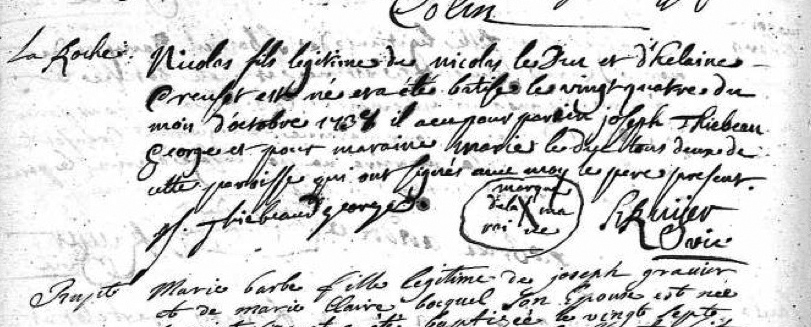 Colin
La Roche. Nicolas fils legitime de nicolas le Duc et d'helaine
Creuset est né et a été batisé le vingt quatre du
mois d'octobre 1738 il a eu pour parein joseph Thiebeau
george et pour maraine marie le duc tous deux de
cette paroisse qui ont signés avec moy le pere present.
J. Thiebeaud george
marque
de la X ma
rai ne
vic
Marie barbe fille legitime de joseph gravier
et de marie Claire bocquel son Epouse est née
baptizée le vingt sept